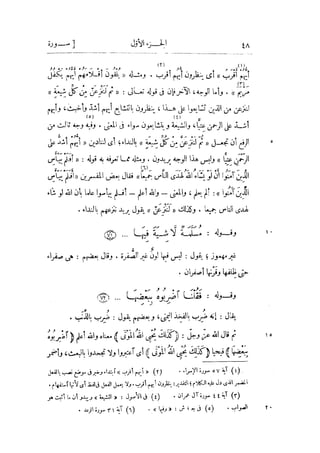 ٤٨ الجزء الأول [ سورة
(١) أَيُّهُمْ أَقْرَبُ » أى ينظرون أيهم أقرب (٢). ومثله « يُلْقُونَ أَقْلَامَهُمْ أَيُّهُمْ يَكْفُلُ
مَرْيَمَ (٣) » . وأما الوجه الآخر فإن فى قوله تعالى : « ثُمَّ لَنَنْزِعَنَّ مِنْ كُلِّ شِيعَةٍ »
لننزعن من الذين تشايعوا على هذا ، ينظرون بالتشايع أيهم أشد وأخبث ، وأيهم
أشد على الرحمن عتيا ، والشيعة ويتشايعون سواء فى المعنى . وفيه وجه ثالث من
الرفع أن تجعل « ثُمَّ لَنَنْزِعَنَّ مِنْ كُلِّ شِيعَةٍ » بالنداء ؛ أى لننادين « أَيُّهُمْ أَشَدُّ عَلَى
الرَّحْمَنِ عِتِيًّا » وليس هذا الوجه يريدون . ومثله مما تعرفه به قوله : « أَفَلَمْ يَيْأَسِ
الَّذِينَ آمَنُوا أَنْ لَوْ يَشَاءُ اللَّهُ لَهَدَى النَّاسَ جَمِيعًا » فقال بعض المفسرين « أَفَلَمْ يَيْأَسِ
الَّذِينَ آمَنُوا » : ألم يعلم ، والمعنى — والله أعلم — أفلم ييأسوا علما بأن الله لو شاء
لهدى الناس جميعا . وكذلك « لَنَنْزِعَنَّ » يقول يريد ننزعهم بالنداء .
١٠ وقوله : مُسَلَّمَةٌ لَا شِيَةَ فِيهَا ... ﴿٧١﴾
غير مهموز ؛ يقول : ليس فيها لون غير الصفرة . وقال بعضهم : هى صفراء
حتى ظلفها وقرنها أصفران .
وقوله : فَقُلْنَا اضْرِبُوهُ بِبَعْضِهَا ... ﴿٧٣﴾
يقال : إنه ضُرِب بالفخذ اليمنى ، وبعضهم يقول : ضُرِب بالذَّنَب .
١٥ ثم قال الله عز وجل : ﴿كَذَلِكَ يُحْيِى اللَّهُ الْمَوْتَى﴾ معناه والله أعلم ﴿اضْرِبُوهُ
بِبَعْضِهَا﴾ فيحيا ﴿كَذَلِكَ يُحْيِى اللَّهُ الْمَوْتَى﴾ أى اعتبروا ولا تجحدوا بالبعث ، وأضمر
(١) آية ٥٧ سورة الإسراء . (٢) « أيهم أقرب » ابتداء وخبر فى موضع نصب بالفعل
المضمر الذى دل عليه الكلام ؛ التقدير : ينظرون أيهم أقرب . ولا يعمل الفعل فى لفظ أى لأنها استفهام .
(٣) آية ٤٤ سورة آل عمران . (٤) فى الأصول : « التشيعة » ويبدو أن ما أثبت هو
٢٠ الصواب . (٥) فى ج ، ش : « وفيها » . (٦) آية ٣١ سورة الرعد .